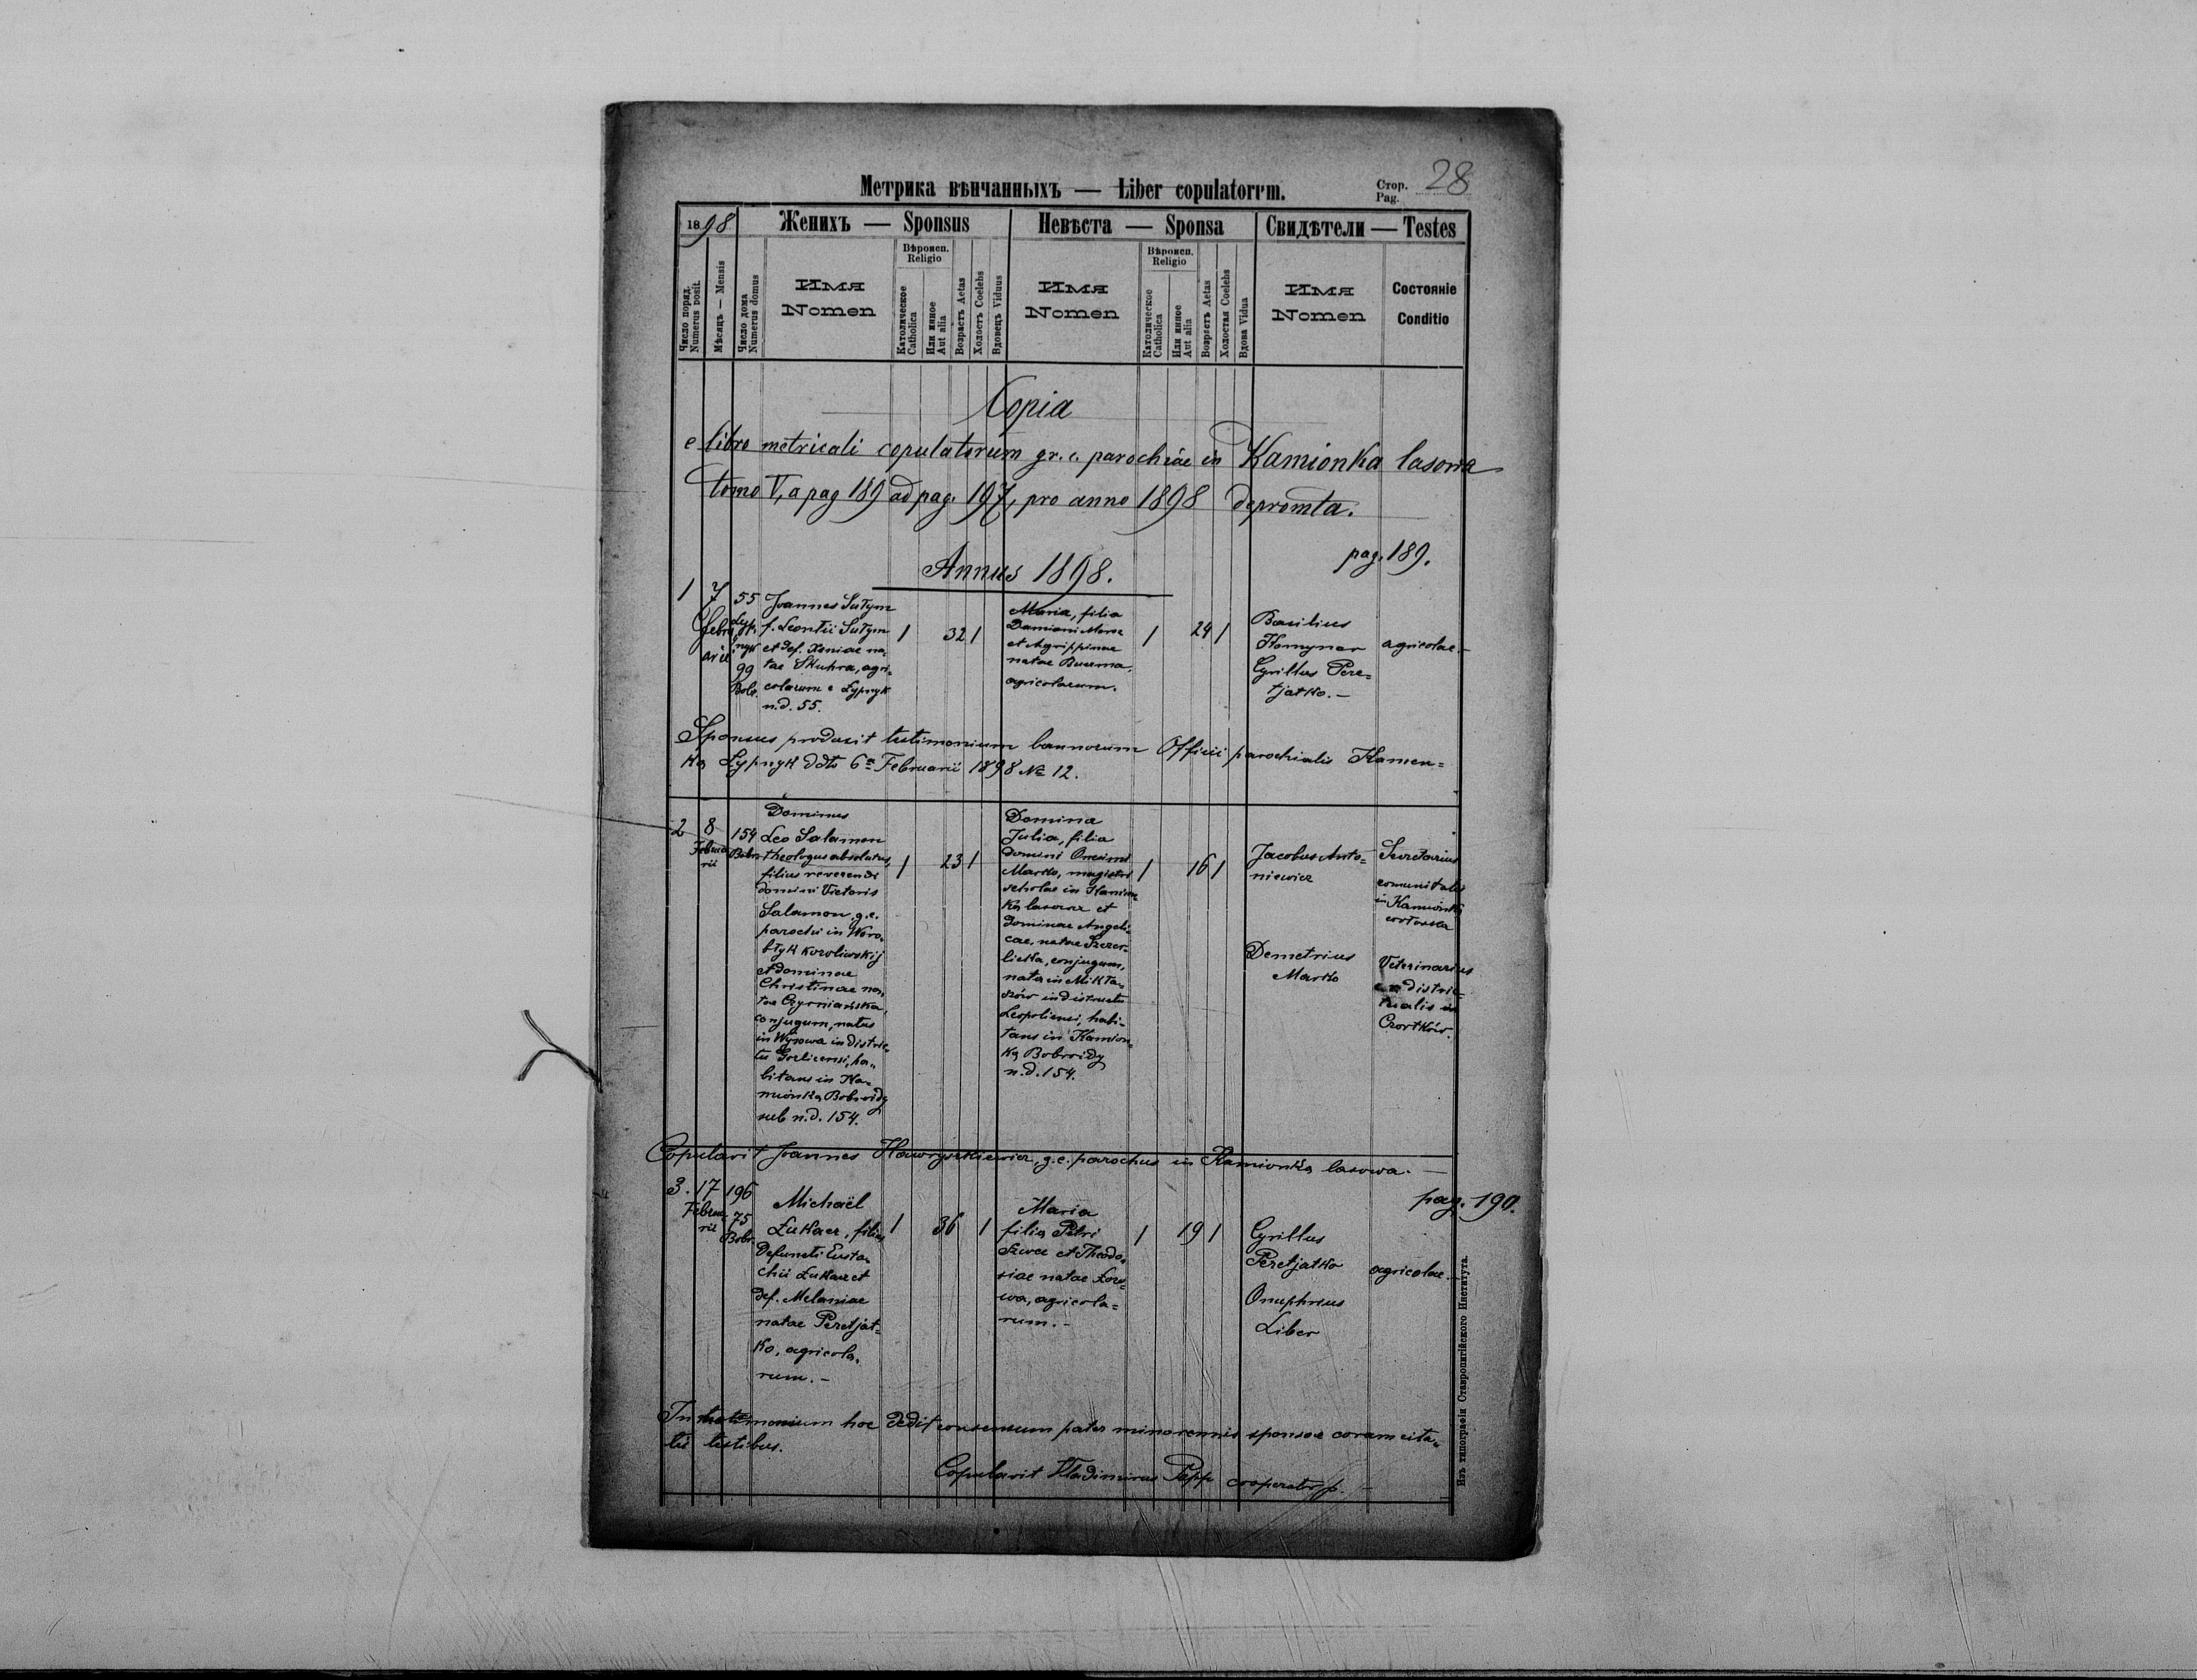 Метрика вѣнчанныхъ — Liber copulatorum.
Стор.
Pag.
28
1898
Женихъ — Sponsus
Невѣста — Sponsa
Свидѣтели — Testes
Число поряд.
Numerus posit.
Мѣсяцъ — Mensis
Число дома
Numerus domus
Имя
Nomen
Вѣроисп.
Religio
Католическое
Catholica
Или иное
Aut alia
Возрастъ Aetas
Холостъ Coelebs
Вдовецъ Viduus
Имя
Nomen
Вѣроисп.
Religio
Католическое
Catholica
Или иное
Aut alia
Возрастъ Aetas
Холостая Coelebs
Вдова Vidua
Имя
Nomen
Состоянie
Conditio
Copia
e libro metricali copulatorum gr. c. parochiae in Kamionka lasowa
tomo V, a pag 189 ad pag. 197, pro anno 1898 depromta.
Annus 1898.
pag. 189.
1
7
Febru
arii
55
Lyp
nyk
99
Bobr.
Joannes Sutym
f. Leontii Sutym
et def. Xeniae na-
tae Skuhra, agri-
colarum e Lypnyk
n.d. 55.
1
32
1
Maria, filia
Damiani
et Agrippinae
natae
agricolarum.
1
24
1
Basilius
Komynar
Cyrillus Pere=
tjatko. —
agricolae. —
Sponsus produxit testimonium bannorum Officii parochialis Kamen=
ka Lypnyk ddto 6ª Februarii 1898 № 12.
2
8
Februa
rii
154
Bobr.
Dominus
Leo Salamon
theologus absolutus,
filius reverendi
domini Victoris
Salamon, g.c.
parochi in Woro-
błyk koroliwskij
et dominae
Christinae na-
tae Czyrniańska,
conjugum, natus
in Wysowa in distric-
tu Gorlicensi, ha-
bitans in Ka-
mionka Bobroidy
sub n.d. 154.
1
23
1
Domina
Julia, filia
domini Onesimi
Marko, magistri
scholae in Kamion-
ka lasowa et
dominae Angeli-
cae, natae
conjugum,
nata in Mikła-
szów in districtu
Leopoliensi, habi-
tans in Kamion-
ka Bobroidy
n.d. 154.
1
16
1
Jacobus Anto=
niewicz
Secretarius
comunitatis
in Kamionka
Demetrius
Marko
Veterinarius
distric=
tualis in
Czortków.
Copulavit Joannes Hawryszkiewicz, g.c. parochus in Kamionka lasowa. —
pag. 190.
3.
17
Februa
rii
196
75
Bobr.
Michaël
Łukacz, filius
defuncti Eusta-
chii Łukacz et
def. Melaniae
natae Peretjat-
ko, agricola-
rum. —
1
36
1
Maria
filia Petri
Szwec et Theodo-
siae natae
agricola=
rum. —
1
19
1
Cyrillus
Peretjatko
Onuphrius
Liber
agricolae. —
In matrimonium hoc dedit consensum pater minorennis sponsae coram cita-
tis testibus.
Copulavit Vladimirus Papp cooperator p. —
Изъ типографіи Ставропигійского Института.